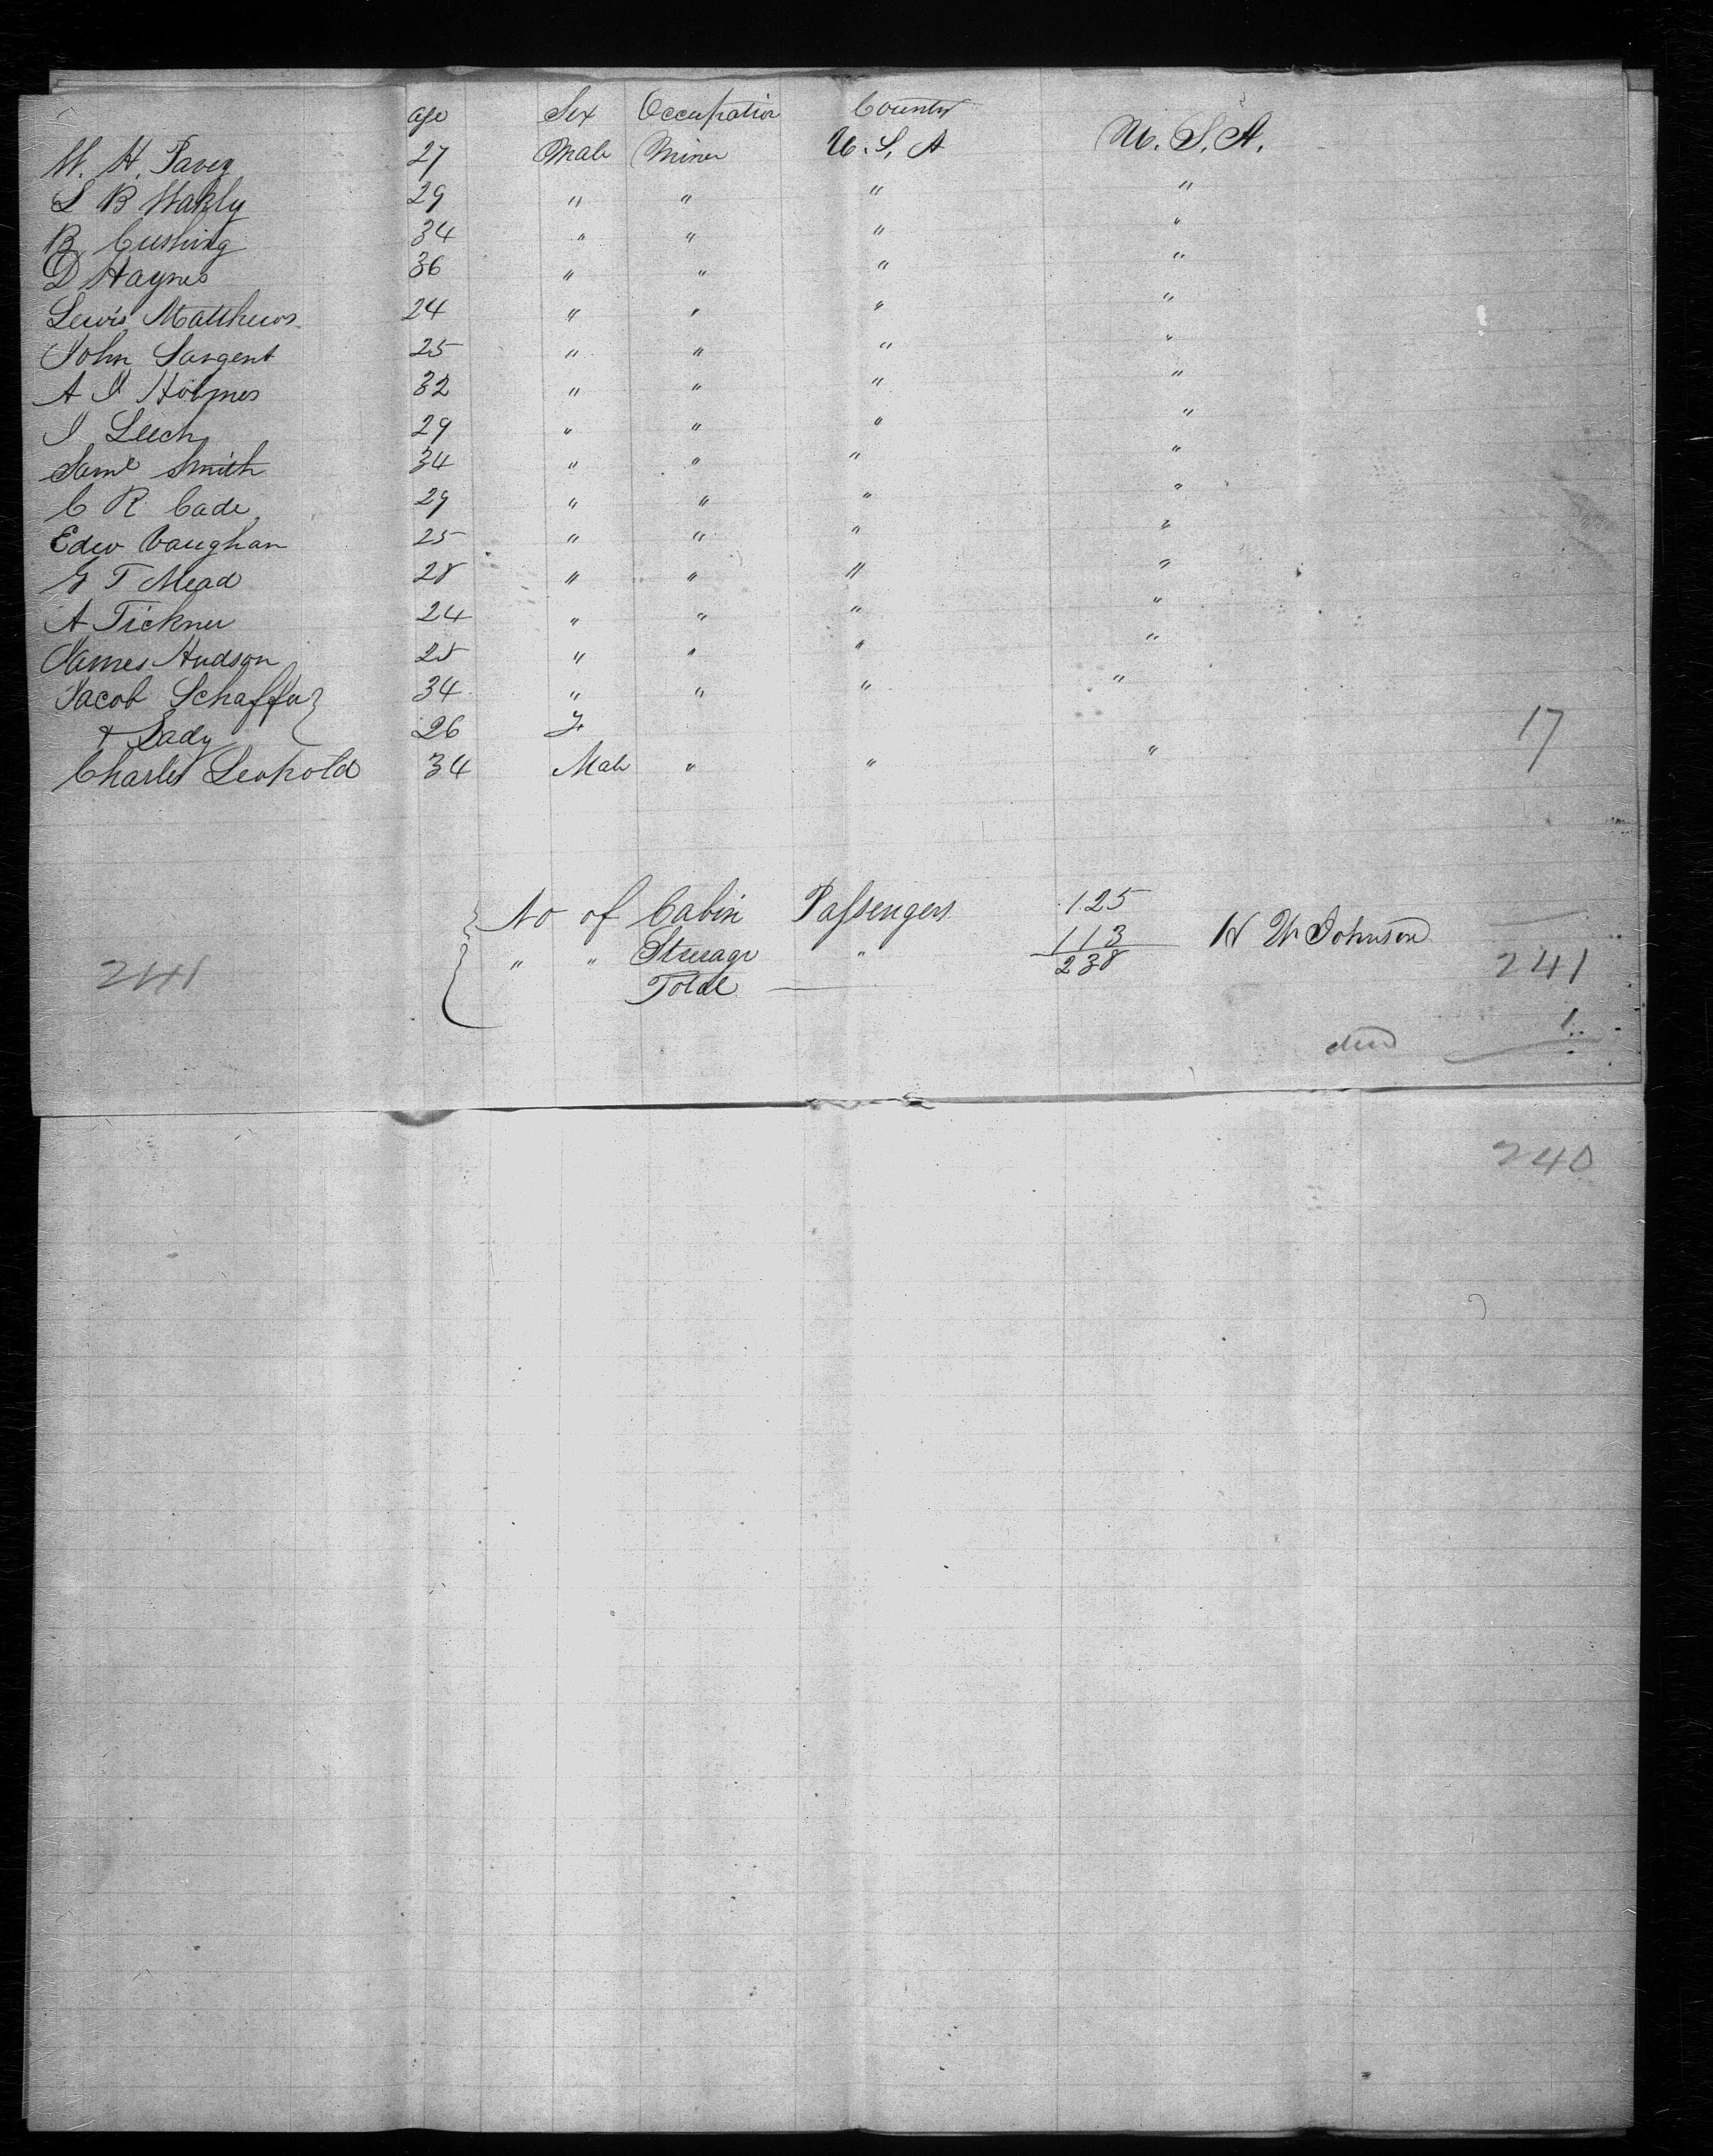 age Sex Occupation Country
W. H. Pavey 27 Male Miner U. S. A U. S. A.
S B Wakly 29 " " " "
B Cushing 34 " " " "
D Haynes 36 " " " "
Lewis Matthews 24 " " " "
John Sargent 25 " " " "
A I Holmes 32 " " " "
I Leech 29 " " " "
Saml Smith 34 " " " "
C R Cade 29 " " " "
Edw Vaughan 25 " " " "
G T Mead 28 " " " "
A Tickner 24 " " " "
James Hudson 25 " " " "
Jacob Schaffer 34 " " " "
& Lady 26 F
17
Charles Leopold 34 Male " " "
No of Cabin Passengers 125
" " Steerage " 113 H W Johnson
241 Total 238 241
died 1
240